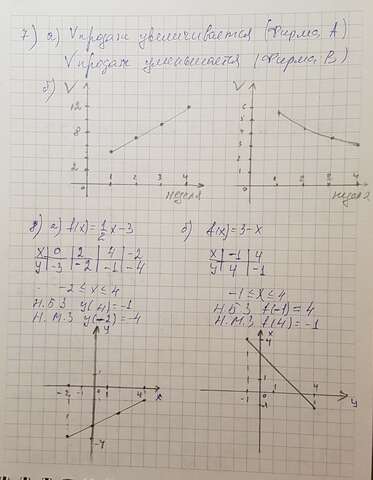 7) а) V продаж увеличивается (Фирма А)
V продаж уменьшается (Фирма В)
б) V
12
8
2
0
1 2 3 4
неделя
V
6
5
4
3
2
1
0
1 2 3 4
неделя
8) а) f(x)=1/2 x-3
x 0 2 4 -2
y -3 -2 -1 -4
-2≤x≤4
Н.Б.З y(4)=-1
Н.М.З y(-2)=-4
y
x
-2 -1 0 4
-4
б) f(x)=3-x
x -1 4
y 4 -1
-1≤x≤4
Н.Б.З f(-1)=4
Н.М.З f(4)=-1
x
4
1
-1 0 1 4
-1
y